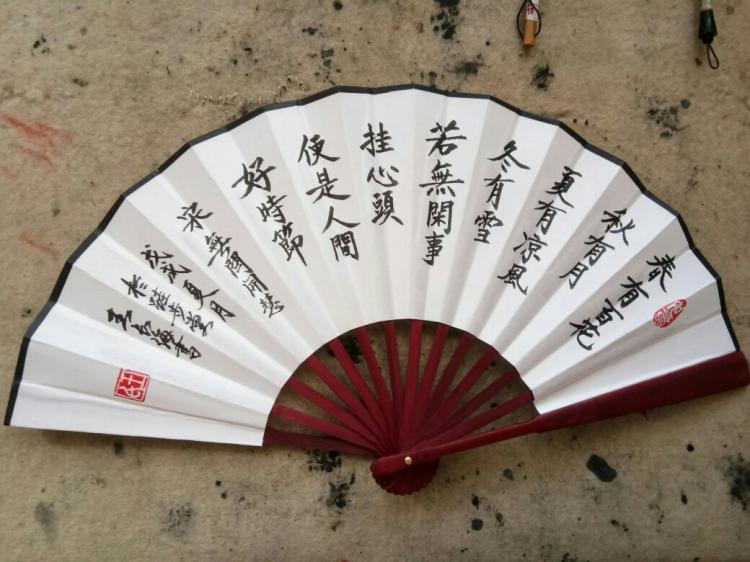 春有百花
秋有月
夏有凉風
冬有雪
若無閑事
挂心頭
便是人間
好時節
宋無門開慧
戊戌夏月
書